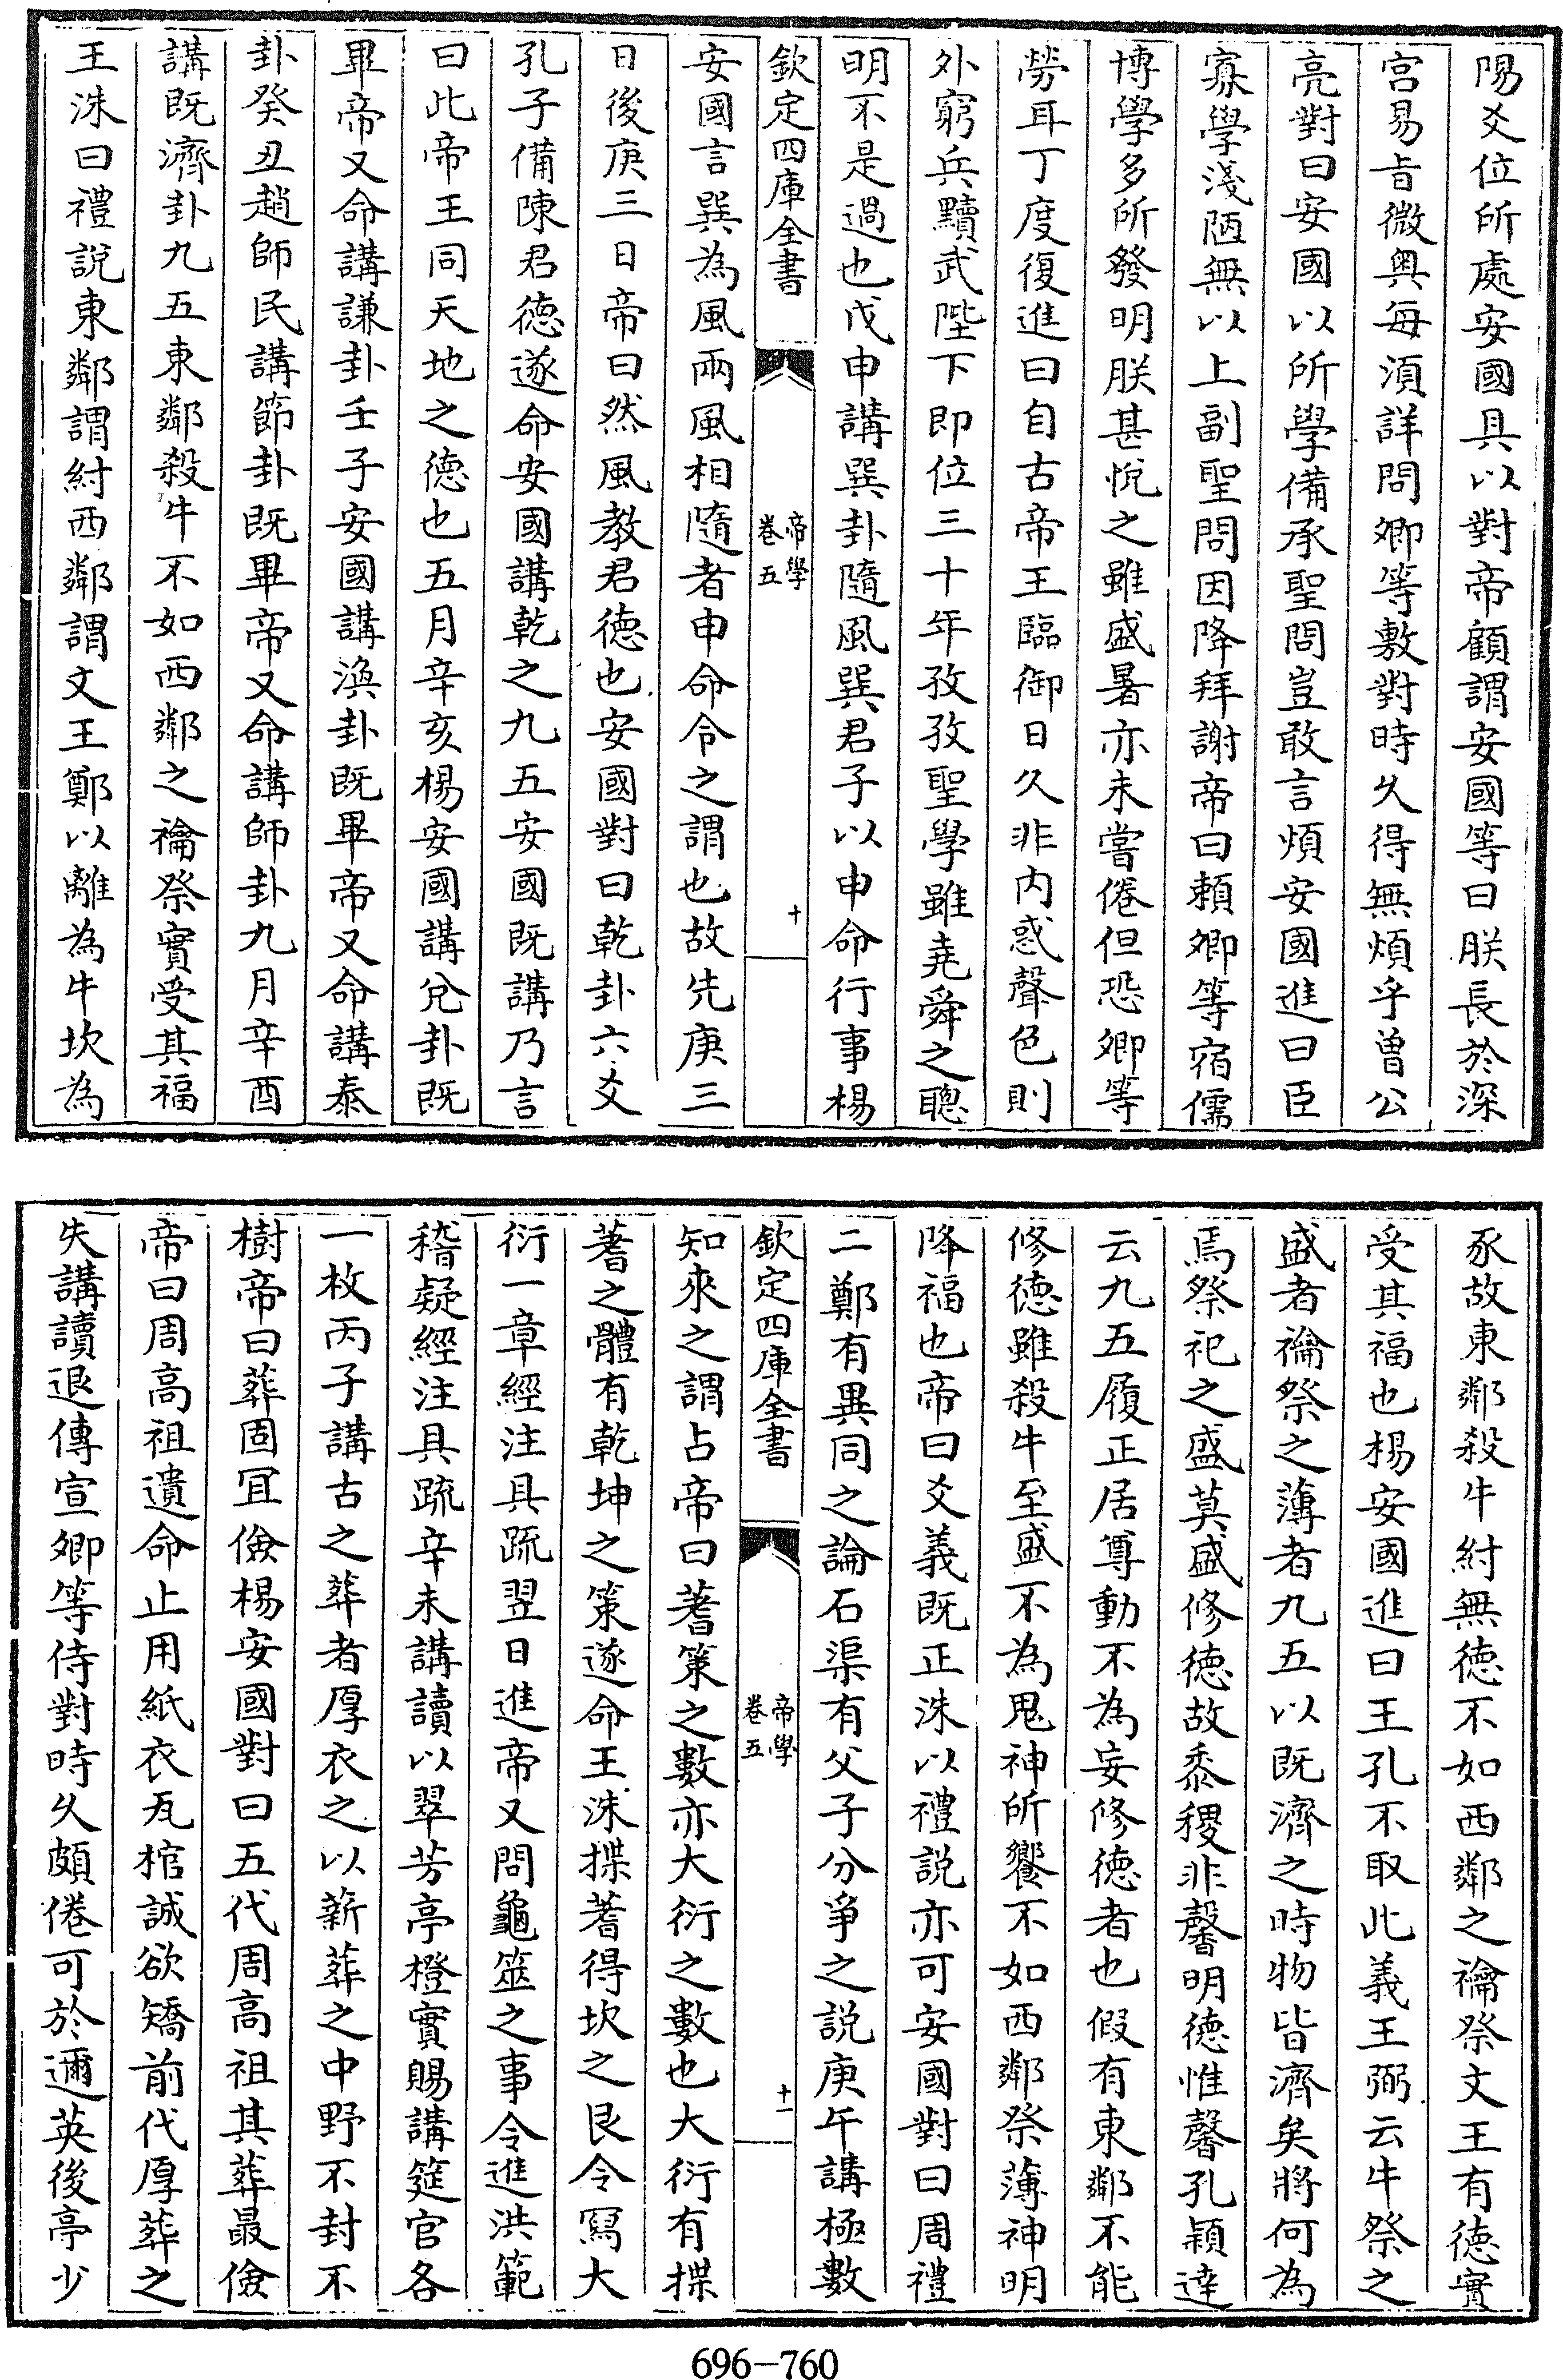 陽爻位所處安國具以對帝顧謂安國等曰朕長於深
宮易㫖微奥每湏詳問卿等敷對時乆得無煩乎曾公
亮對曰安國以所學備承聖問豈敢言煩安國進曰臣
寡學淺陋無以上副聖問因降拜謝帝曰頼卿等宿儒
博學多所發明朕甚悅之雖盛暑亦未嘗倦但恐卿等
勞耳丁度復進曰自古帝王臨御日久非内惑聲色則
外窮兵黷武陛下即位三十年孜孜聖學雖堯舜之聰
明不是過也戊申講巽卦隨風巽君子以申命行事楊
欽定四庫全書
帝學
卷五
十
安國言巽為風兩風相隨者申命令之謂也故先庚三
日後庚三日帝曰然風教君德也安國對曰乾卦六爻
孔子備陳君徳遂命安國講乾之九五安國既講乃言
曰此帝王同天地之德也五月辛亥楊安國講兊卦既
畢帝又命講謙卦壬子安國講渙卦既畢帝又命講泰
卦癸丑趙師民講節卦既畢帝又命講師卦九月辛酉
講既濟卦九五東鄰殺牛不如西鄰之禴祭實受其福
王洙曰禮說東鄰謂紂西鄰謂文王鄭以離為牛坎為
豕故東鄰殺牛紂無德不如西鄰之禴祭文王有德實
受其福也楊安國進曰王孔不取此義王弼云牛祭之
盛者禴祭之薄者九五以既濟之時物皆濟矣將何為
焉祭祀之盛莫盛修德故黍稷非馨明德惟馨孔穎達
云九五履正居尊動不為妄修德者也假有東鄰不能
修德雖殺牛至盛不為鬼神所饗不如西鄰祭薄神明
降福也帝曰爻義既正洙以禮說亦可安國對曰周禮
二鄭有異同之論石渠有父子分爭之説庚午講極數
欽定四庫全書
帝學
卷五
十一
知來之謂占帝曰蓍策之數亦大衍之數也大衍有揲
蓍之體有乾坤之策遂命王洙揲蓍得坎之艮令寫大
衍一章經注具䟽翌日進帝又問龜筮之事令進洪範
稽疑經注具䟽辛未講讀以翠芳亭橙實賜講筵官各
一枚丙子講古之葬者厚衣之以薪葬之中野不封不
樹帝曰葬固宜儉楊安國對曰五代周高祖其葬最儉
帝曰周高祖遺命止用紙衣瓦棺誠欲矯前代厚葬之
失講讀退傳宣卿等侍對時乆頗倦可於邇英後亭少
696-760